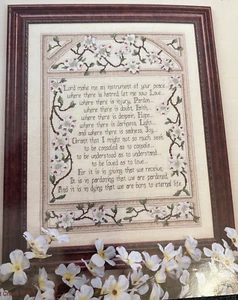 Lord make me an instrument of your peace
where there is hatred, let me sow Love...
where there is injury, Pardon...
where there is doubt, Faith...
where there is despair, Hope...
where there is darkness, Light...
and where there is sadness, Joy...
Grant that I might not so much seek
to be consoled as to console...
to be understood as to understand...
to be loved as to love...
For it is in giving that we receive;
It is in pardoning that we are pardoned;
And it is in dying that we are born to eternal life.